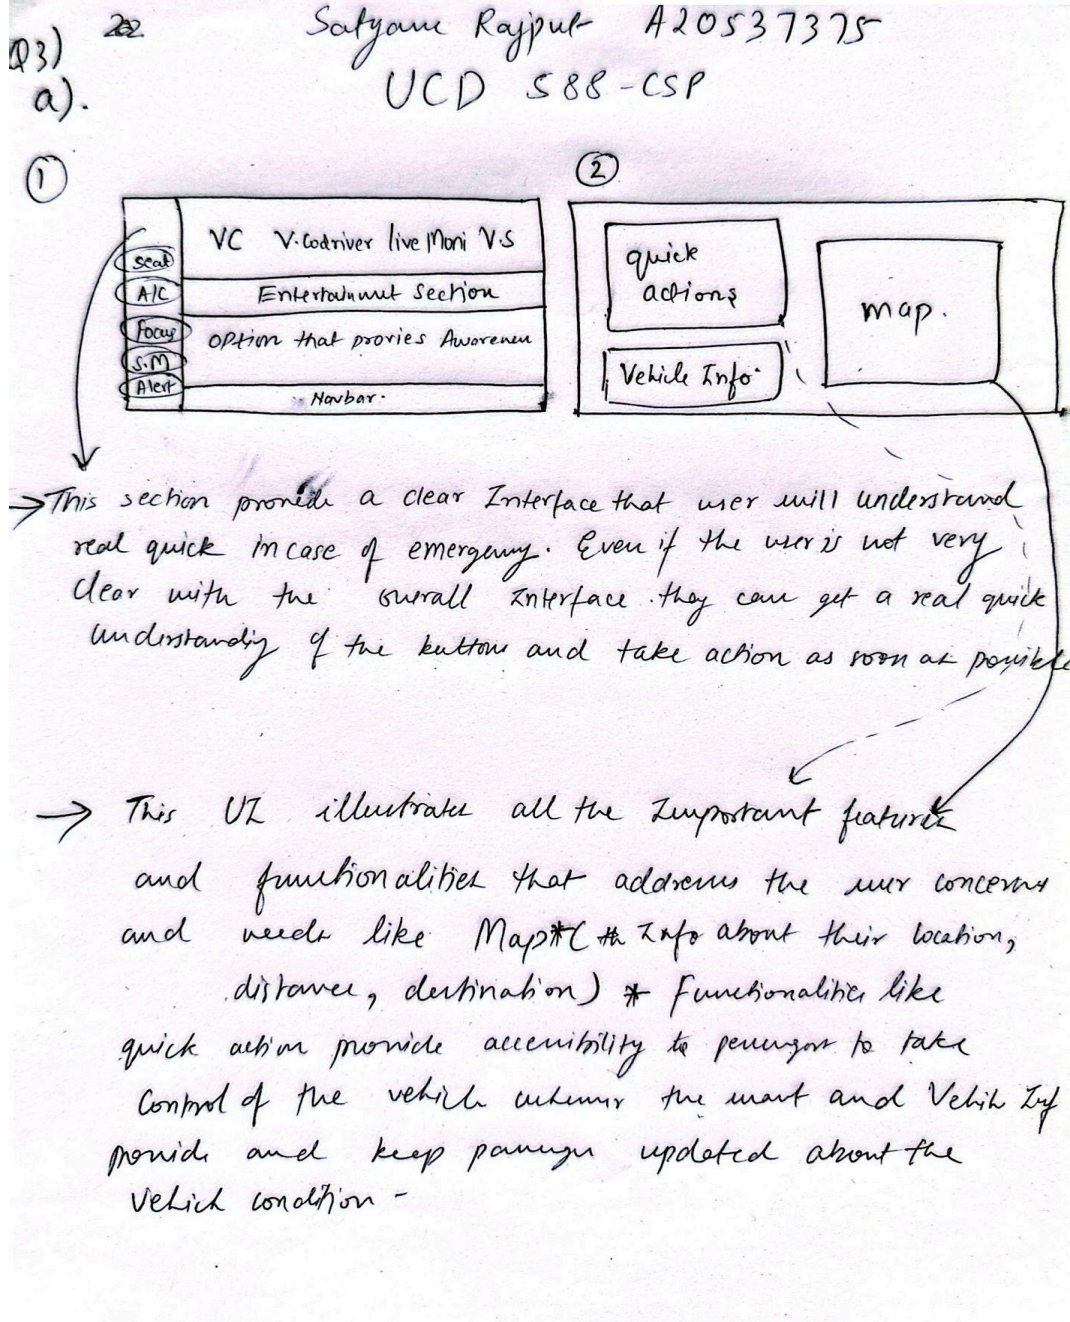 Q3)
Satyam Rajput A20537375
a).
UCD 588-CSP
1
2
VC V.Codriver live Moni V.S
Seat
A/C
Entertainmut section
Focus
option that provies Awarenen
S.M
Alert
Navbar.
quick
actions
Vehicle Info.
map.
→ This section provide a clear Interface that user will understand
real quick incase of emergency. Even if the user is not very
clear with the overall Interface. they can get a real quick
understanding of the buttons and take action as soon as possible
→ This UI illustrates all the Important features
and functionalities that address the user concerns
and needs like Map*( Info about their location,
distance, destination) * Functionalities like
quick action provide accessibility to passenger to take
Control of the vehicle whenever the want and Vehicle Inf
provide and keep passenger updated about the
vehicle condition -